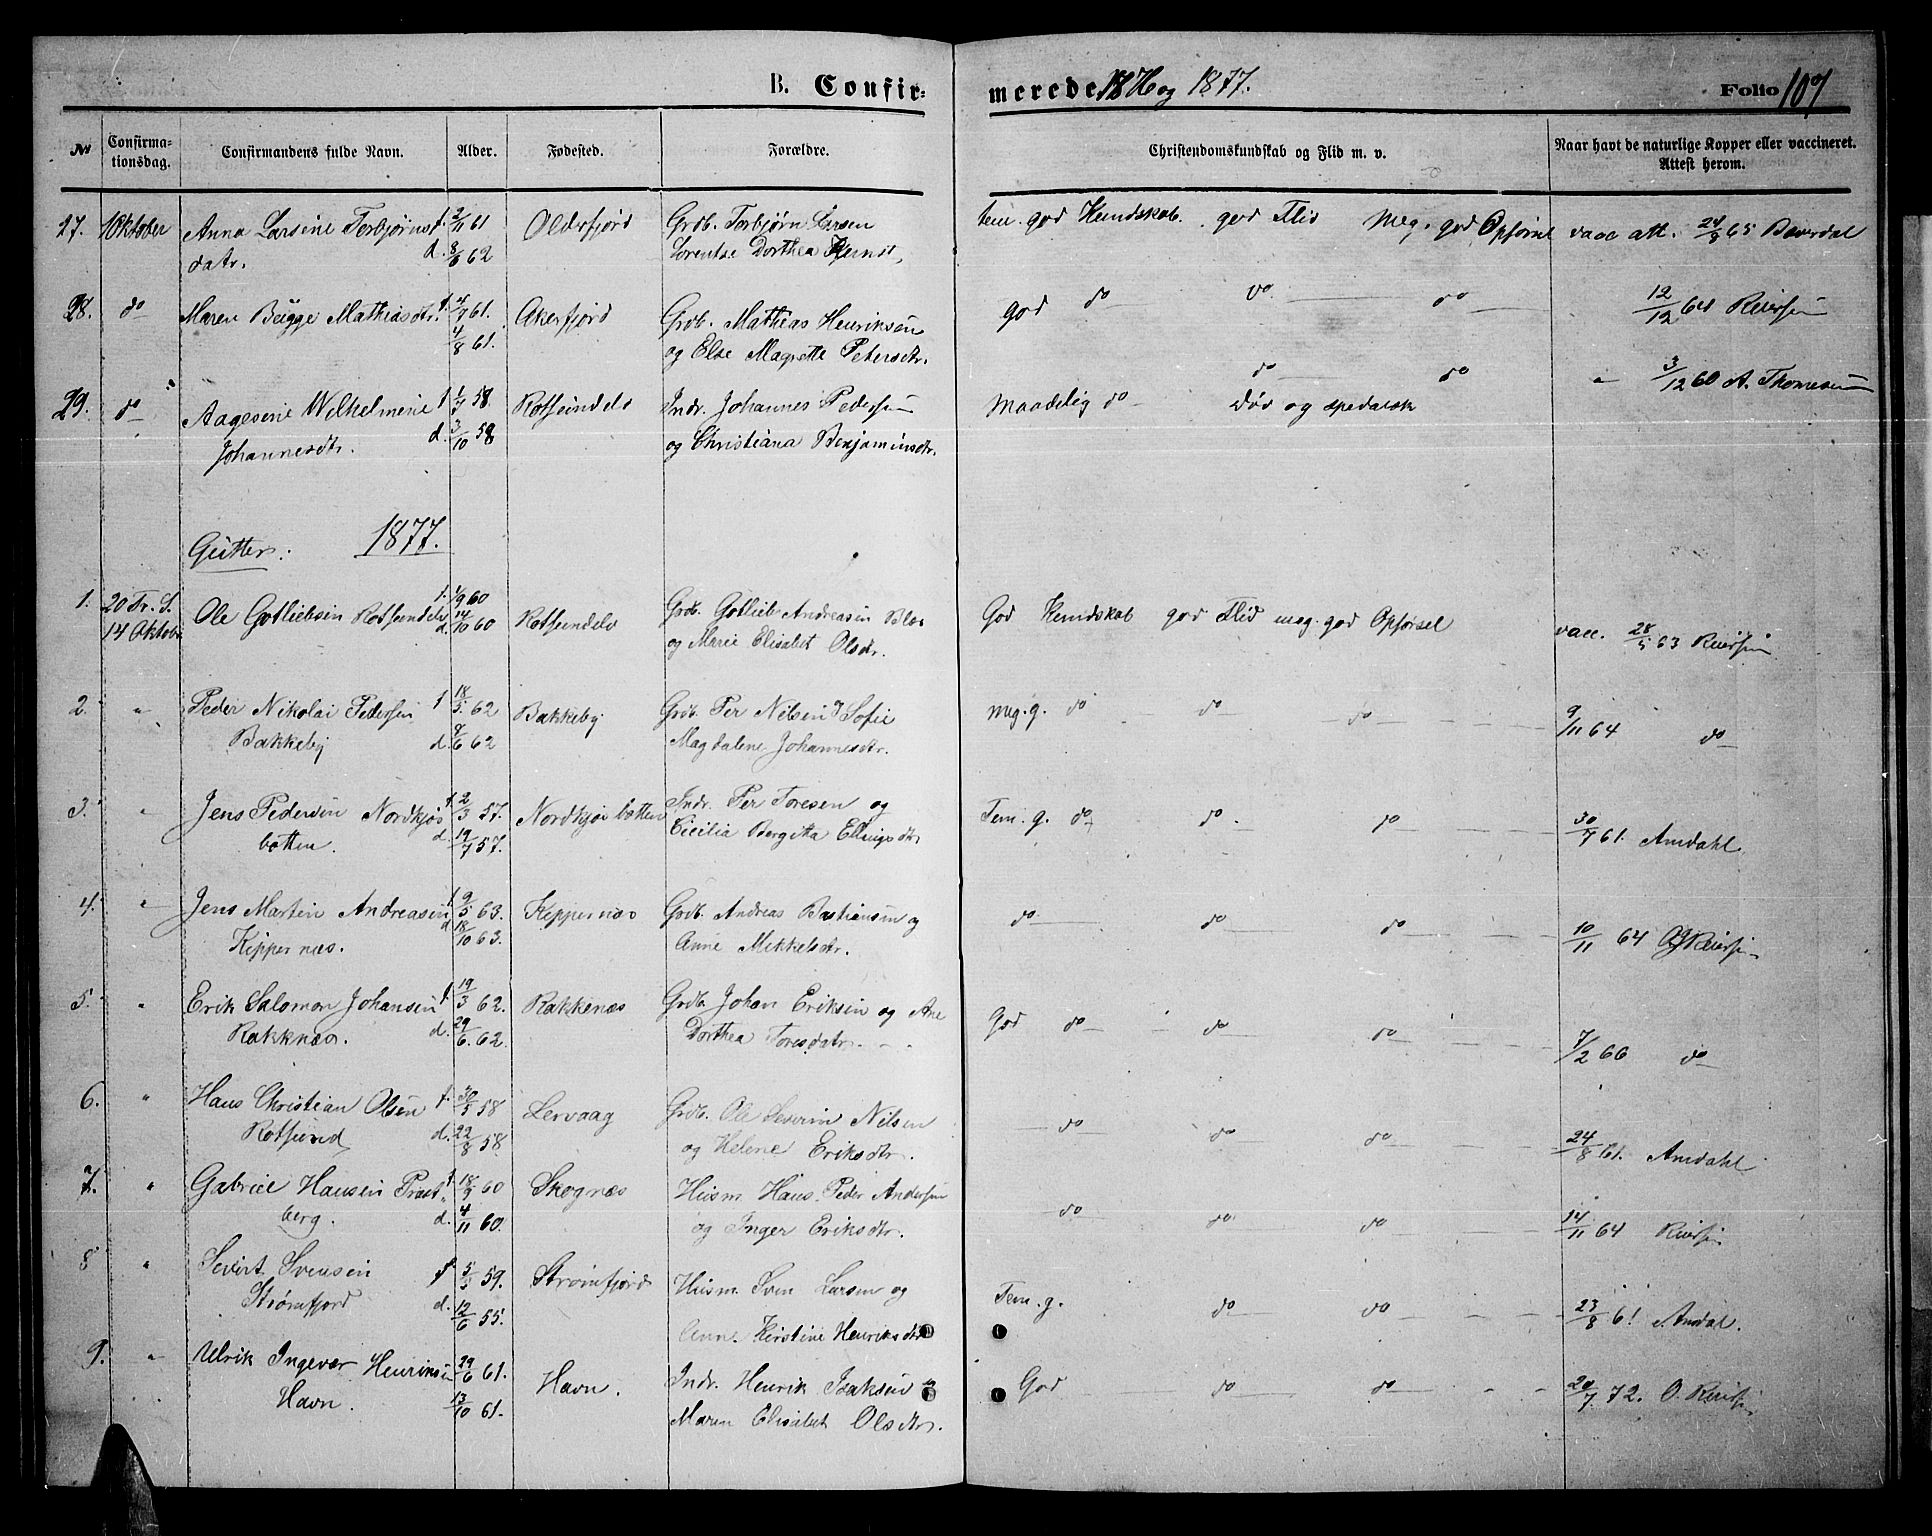 B. Confir-
merede 1876 og 1877.
Folio 107
№
Confirma-
tionsdag.
Confirmandens fulde Navn.
Alder.
Fødested.
Forældre.
Christendomskundskab og Flid m. v.
Naar havt de naturlige Kopper eller vaccineret.
Attest herom.
27. 1 Oktober Anna Larsine Torbjørns f. 2/11 61 Olderfjord Grdb. Torbjørn Larsen tem. god Kundskab. god Flid Meg. god Opførsel vacc att. 24/8 65 Baverdal
datr. d. 8/6 62 Lorentse Dorthea
28. do Maren Bugge Mathiasdtr. f. 4/7 61. Akerfjord Grdb. Mathias Henriksen god do do do 12/12 64 Reiersen
4/8 61. og Else Magrette Petersdtr.
29. do Aagesine Wilhelmine f 1/7 58. Rotsundelv Indr. Johannes Pedersen Maadelig do do do " 3/12 60 A. Thomesen
Johannesdtr. d. 3/10 58 og Christiana Benjaminsdtr. Døv og spedalsk
Gutter: 1877.
1. 20 Tr. S. Ole Gotliebsen Rotsundelv f. 1/9 60 Rotsundelv Grdb. Gotlieb Andreasen God Kundskab god Flid meg. god Opførsel vacc. 28/5 63 Reiersen
14 Oktobr d. 14/10 60 og Marie Elisabet Olsdtr.
2. " Peder Nikolai Pedersen f 18/5. 62 Bakkeby Grdb. Per Nilsen og Sofie Meg. g. do do do 9/11 64 do
Bakkeby d. 8/6 62 Magdalene Johannesdtr.
3. " Jens Pedersen Nordkjos f. 2/3 57. Nordkjosbotten Indr. Per Toresen og Tem. g. do do do 30/7 61. Amdahl.
botten. d. 19/7 57. Cicilia Bergitta Ellingsdtr
4. " Jens Martin Andreasen f. 9/5 63. Keppernæs Grdb. Andreas Bastiansen og do do do 10/11 64 Reiersen
Kippernæs. d 18/10 63. Anne Mikkelsdtr.
5. " Erik Salomon Johansen f. 19/3 62. Rakkenæs Grdb. Johan Eriksen og Ane God do do do 7/2 66 do
Rakknæs. d. 29/6. 62. Dorthea Toresdatr.
6. " Hans Christian Olsen f. 30/5 58 Lervaag Grdb. Ole Severin Nilsen do do do 24/8 61. Amdahl
Rotsund d. 22/8 58. og Helene Eriksdtr.
7. " Gabriel Hansen Præst f. 18/9 60 Skognæs Husm. Hans Peder Andersen do do do 14/11 64 Reiersen
berg. d. 4/11 60. og Inger Eriksdtr.
8 " Sevirt Svensen f 5/5 59. Strømfjord Husm. Sven Larsen og Tem. g. do do 23/8 61 Amdal.
Strømfjord d. 12/6 55. Anne Kirstine Henriksdtr
9. " Ulrik Ingevar Henriksen 29/6 61. Havn. Indr. Henrik Isaksen og God do do 20/7. 72. O. Reiersen
Havn. 13/10 61. Maren Elisabet Olsdtr.